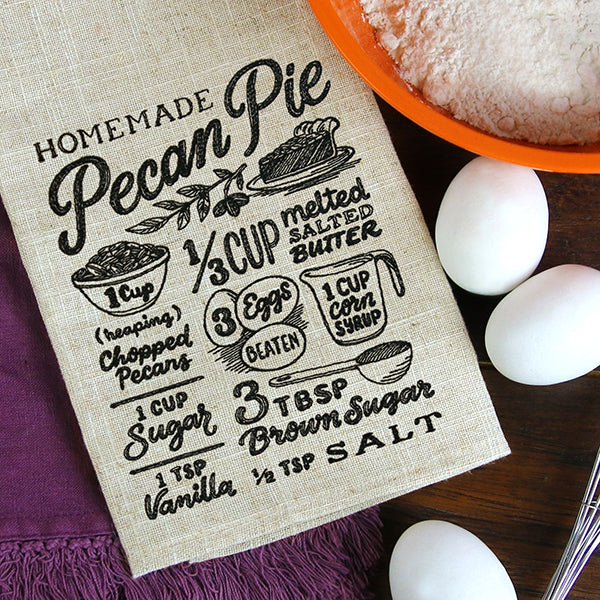 HOMEMADE
Pecan Pie
1/3 CUP
melted
SALTED
BUTTER
1 Cup
(heaping)
Chopped
Pecans
3 Eggs
BEATEN
1 CUP
Corn
SYRUP
1 CUP
Sugar
3 TBSP
Brown Sugar
1 TSP
Vanilla
1/2 TSP SALT